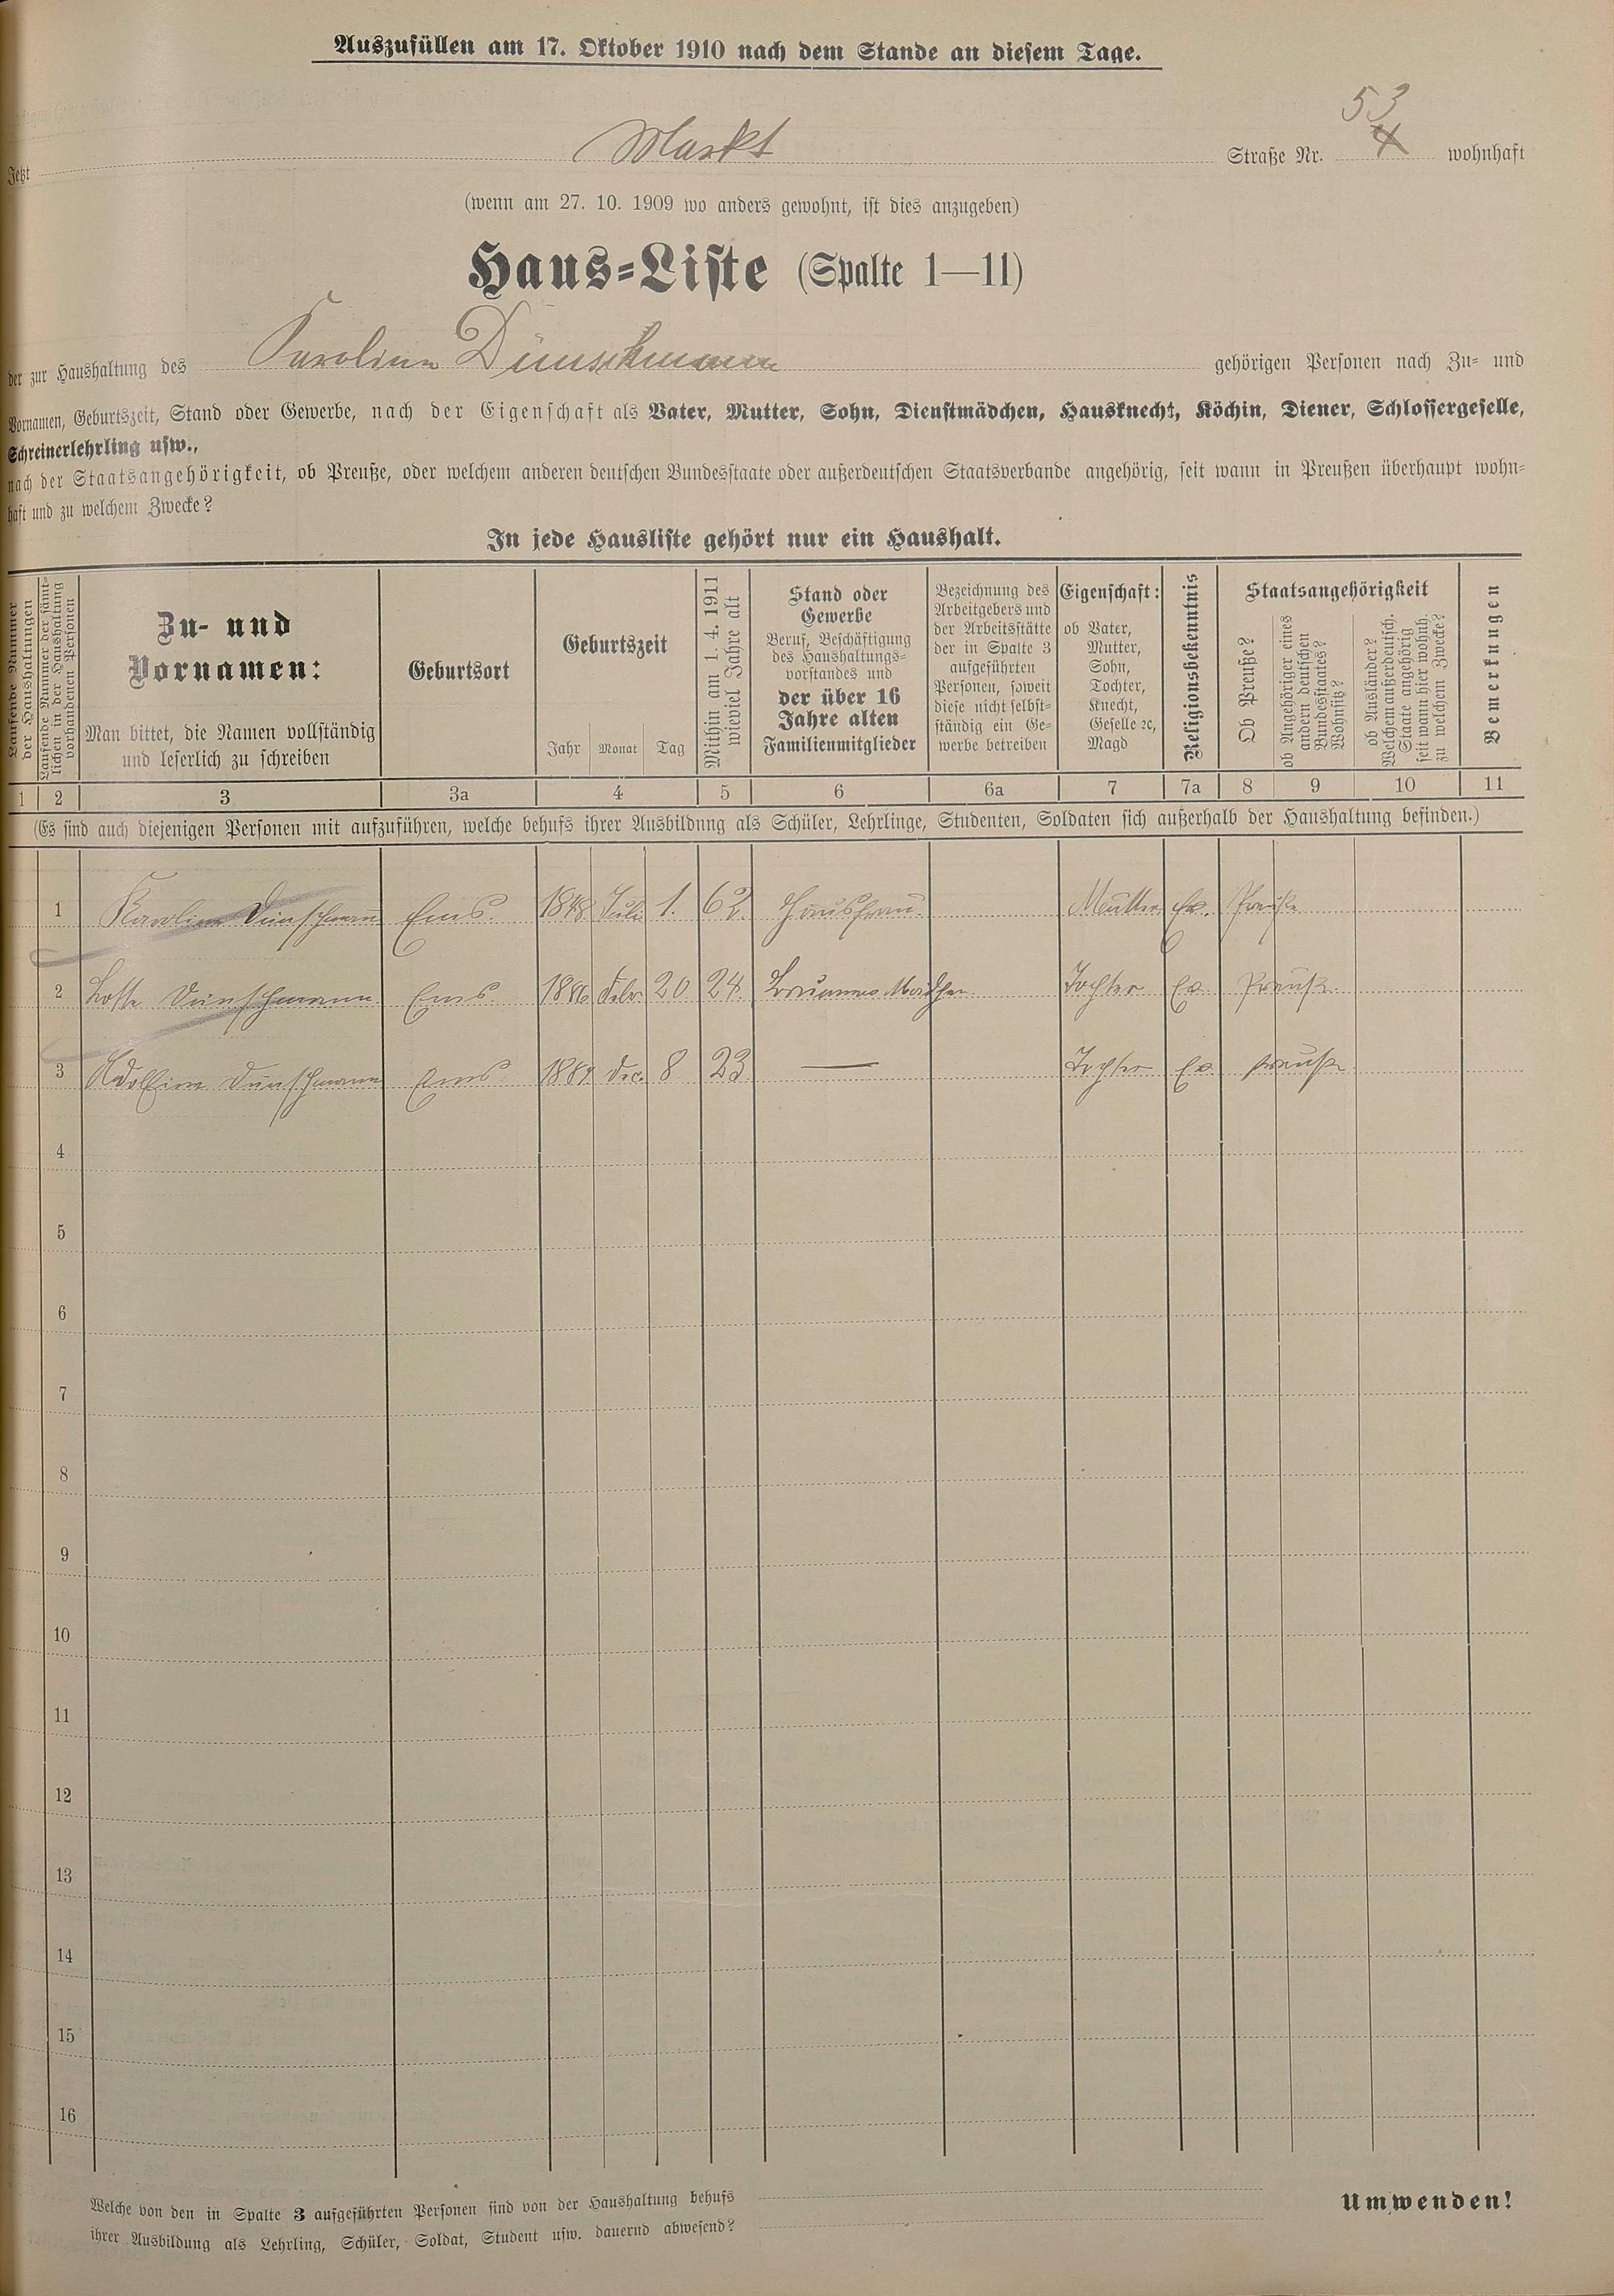 Auszufüllen am 17. Oktober 1910 nach dem Stande an diesem Tage.
53
Jetzt Markt Straße Nr. 4 wohnhaft
(wenn am 27. 10. 1909 wo anders gewohnt, ist dies anzugeben)
Haus-Liste (Spalte 1—11)
der zur Haushaltung des Karoline Dünschmann gehörigen Personen nach Zu- und
Vornamen, Geburtszeit, Stand oder Gewerbe, nach der Eigenschaft als Vater, Mutter, Sohn, Dienstmädchen, Hausknecht, Köchin, Diener, Schlossergeselle,
Schreinerlehrling usw.,
nach der Staatsangehörigkeit, ob Preuße, oder welchem anderen deutschen Bundesstaate oder außerdeutschen Staatsverbande angehörig, seit wann in Preußen überhaupt wohn-
haft und zu welchem Zwecke?
In jede Hausliste gehört nur ein Haushalt.
Laufende Nummer
der Haushaltungen
Laufende Nummer der sämt-
lichen in der Haushaltung
vorhandenen Personen
Zu- und
Vornamen:
Man bittet, die Namen vollständig
und leserlich zu schreiben
Geburtsort
Geburtszeit
Jahr Monat Tag
Mithin am 1. 4. 1911
wieviel Jahre alt
Stand oder
Gewerbe
Beruf, Beschäftigung
des Haushaltungs-
vorstandes und
der über 16
Jahre alten
Familienmitglieder
Bezeichnung des
Arbeitgebers und
der Arbeitsstätte
der in Spalte 3
aufgeführten
Personen, soweit
diese nicht selbst-
ständig ein Ge-
werbe betreiben
Eigenschaft:
ob Vater,
Mutter,
Sohn,
Tochter,
Knecht,
Geselle ꝛc,
Magd
Religionsbekenntnis
Staatsangehörigkeit
Ob Preuße?
ob Angehöriger eines
andern deutschen
Bundesstaates?
Wohnsitz?
ob Ausländer?
Welchem außerdeutsch.
Staate angehörig
seit wann hier wohnh.
zu welchem Zwecke?
Bemerkungen
1 2 3 3a 4 5 6 6a 7 7a 8 9 10 11
(Es sind auch diejenigen Personen mit aufzuführen, welche behufs ihrer Ausbildung als Schüler, Lehrlinge, Studenten, Soldaten sich außerhalb der Haushaltung befinden.)
1 Karoline Dünschmann Ems. 1848 Juli 1. 62. Hausfrau. Mutter Ev. Preuße
2 Lotte Dünschmann Ems. 1886 Febr. 20 24. Brunnen Mädchen. Tochter Ev. Preuße
3 Dünschmann Ems. 1887 Dec. 8 23 — Tochter Ev. Preuße
4
5
6
7
8
9
10
11
12
13
14
15
16
Welche von den in Spalte 3 aufgeführten Personen sind von der Haushaltung behufs
ihrer Ausbildung als Lehrling, Schüler, Soldat, Student usw. dauernd abwesend?
Umwenden!